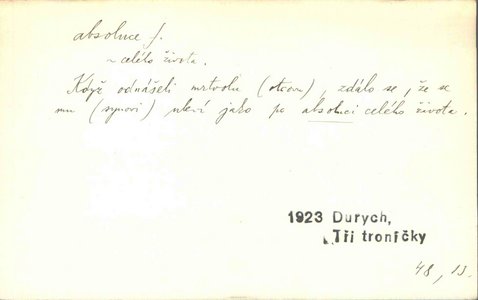 absoluce f.
~ celého života.
Když odnášeli mrtvolu (otcovu), zdálo se, že se
mu (synovi) uleví jako po absoluci celého života.
1923 Durych,
Tři troníčky
48, 13.